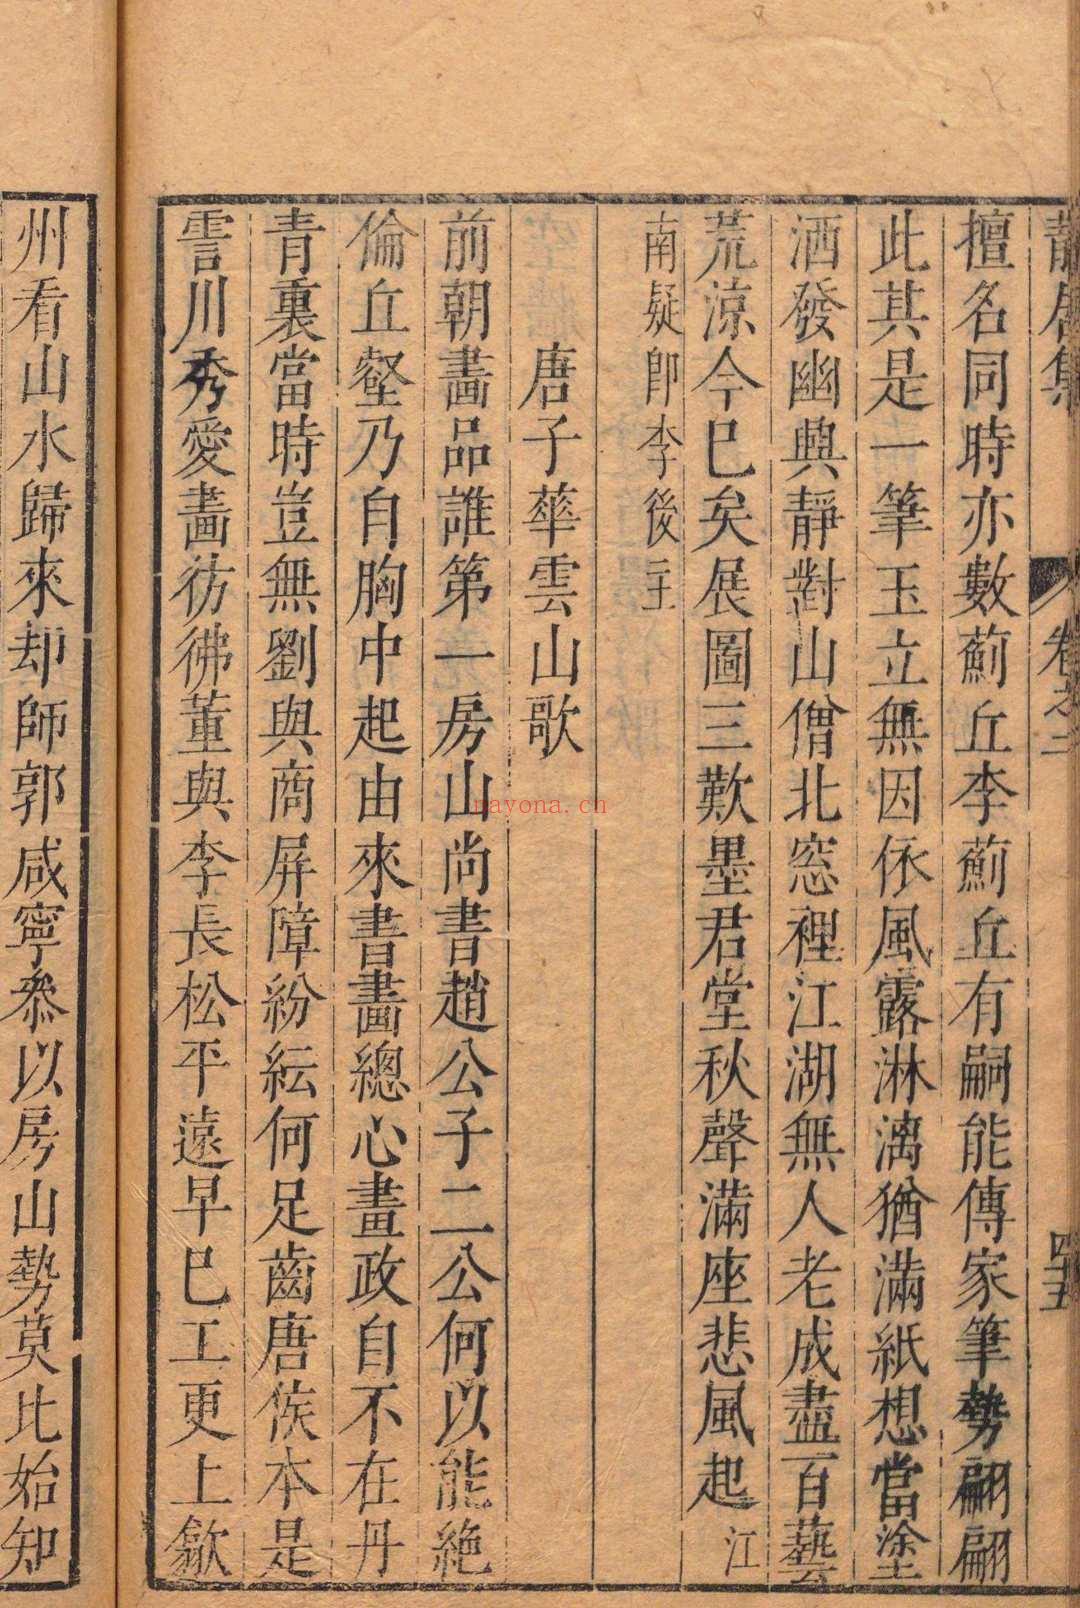 靜居集 卷之二 四十五
擅名同時亦數薊丘李薊丘有嗣能傳家筆勢翩翩
此其是一筆玉立無因依風露淋漓猶滿紙想當塗
酒發幽興靜對山僧北窓裡江湖無人老成盡百藝
荒涼今已矣展圖三歎墨君堂秋聲滿座悲風起江
南疑卽李後主
唐子華雲山歌
前朝畵品誰第一房山尚書趙公子二公何以能絶
倫丘壑乃自胸中起由來書畵總心畫政自不在丹
青裏當時豈無劉與商屏障紛紜何足齒唐侯本是
霅川秀愛畵彷彿董與李長松平遠早已工更上歙
州看山水歸來却師郭咸寧叅以房山勢莫比始知
nayona.cn